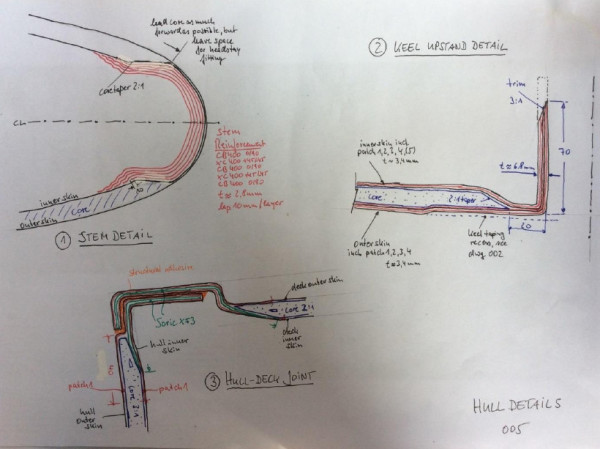 forward as possible, but
leave space
for headstay
fitting
core taper 2:1
CL
stem
Reinforcement
CB400 0/90
XC400 +45/-45
CB400 0/90
XC400 +45/-45
CB400 0/90
t = 2,8mm
lap 10mm/layer
inner skin
outer skin
core
1 STEM DETAIL
2 KEEL UPSTAND DETAIL
trim
3:1
70
t=6.8mm
inner skin incl
patch 1,2,3,4,(5)
t = 3,4mm
core
2:1 taper
20
outer skin
incl patch 1,2,3,4
t=3,4mm
keel taping
dwg. 002
structural adhesive
Soric XF3
hull inner
skin
deck outer skin
core 2:1
deck
inner
skin
90
patch 1
patch 1
core 2:1
hull
outer
skin
3 HULL-DECK JOINT
HULL DETAILS
005